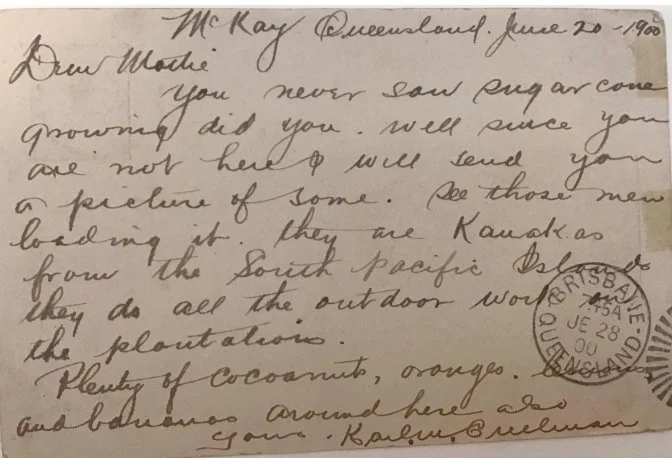 McKay Queensland. June 20 - 1900
Dear Mattie
You never saw sugar cane
growing did you. Well since you
are not here I will send you
a picture of some. See those men
loading it. they are Kanakas
from the South Pacific Islands
they do all the outdoor work on
the plantations.
Plenty of cocoanuts, oranges.
and bananas around here also
yours -
BRISBANE
7.45A
JE 28
00
QUEENSLAND